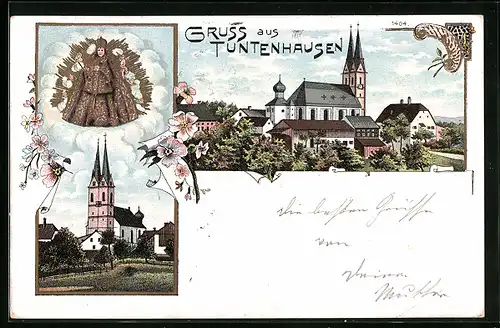 GRUSS AUS
TUNTENHAUSEN
1404.
die besten Grüsse
von
Deiner
Mutter